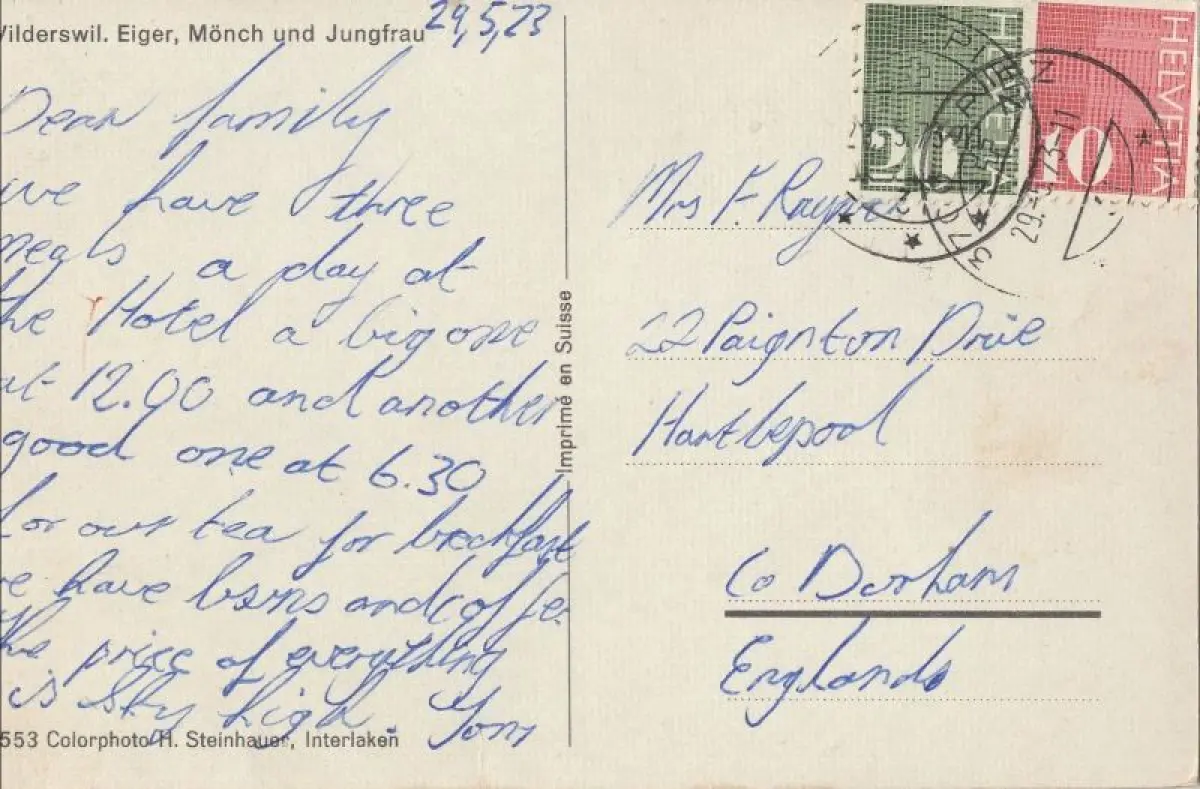 Wilderswil. Eiger, Mönch und Jungfrau
29,5,73
Dear family
we have three
meals a day at
the Hotel a big one
at 12.00 and another
good one at 6.30
for our tea for breckfast
we have bsrns and coffe.
the price of everything
is sky high. Tony
553 Colorphoto H. Steinhauer, Interlaken
Imprimé en Suisse
HELVETIA
20
HELVETIA
10
29.-5.73-11
Mrs F. Rayner
22 Paignton Drive
Hartlepool
Co Durham
England